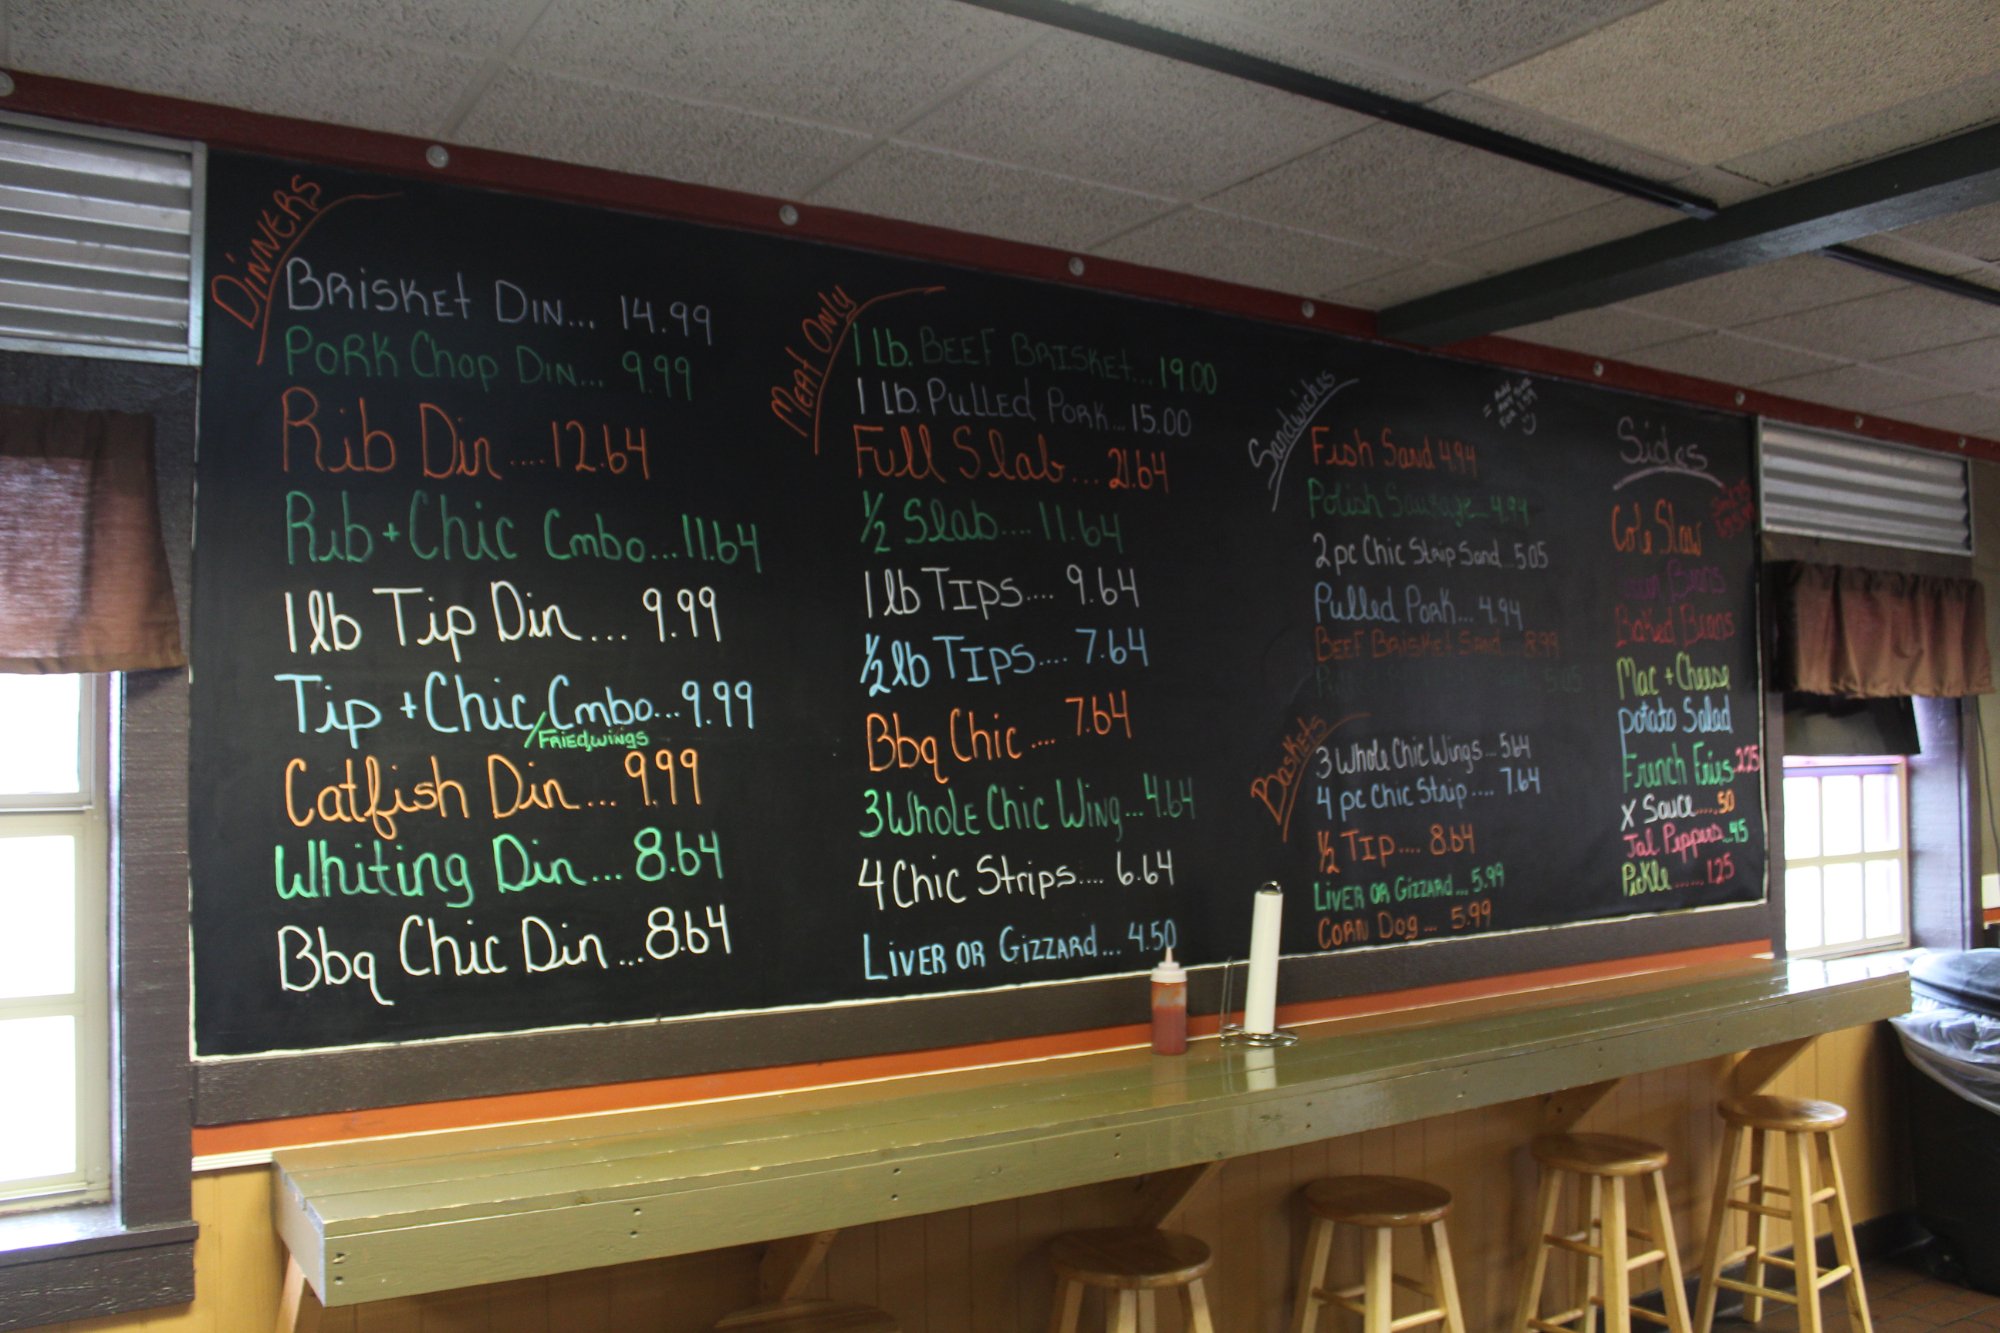 Dinners
Brisket Din... 14.99
Pork Chop Din... 9.99
Rib Din .... 12.64
Rib + Chic Cmbo... 11.64
1 lb Tip Din ... 9.99
Tip + Chic Cmbo... 9.99
/Fried, wings
Catfish Din ... 9.99
Whiting Din ... 8.64
Bbq Chic Din ... 8.64
Meat Only
1 Lb. Beef Brisket... 19.00
1 lb. Pulled Pork... 15.00
Full Slab ... 21.64
1/2 Slab .... 11.64
1 lb Tips .... 9.64
1/2 lb Tips .... 7.64
Bbq Chic .... 7.64
3 Whole Chic Wing... 4.64
4 Chic Strips .... 6.64
Liver or Gizzard... 4.50
Sandwiches
Fish Sand 4.94
Polish Sausage.. 4.94
2 pc Chic Strip Sand.. 5.05
Pulled Pork... 4.94
Beef Brisket Sand... 8.99
Baskets
3 Whole Chic Wings... 5.64
4 pc Chic Strip .... 7.64
1/2 Tip .... 8.64
Liver or Gizzard... 5.99
Corn Dog ... 5.99
Sides
Cole Slaw
Beans
Baked Beans
Mac + Cheese
Potato Salad
French Fries 2.25
X Sauce.....50
Jal. Peppers..45
Pickle ...... 1.25